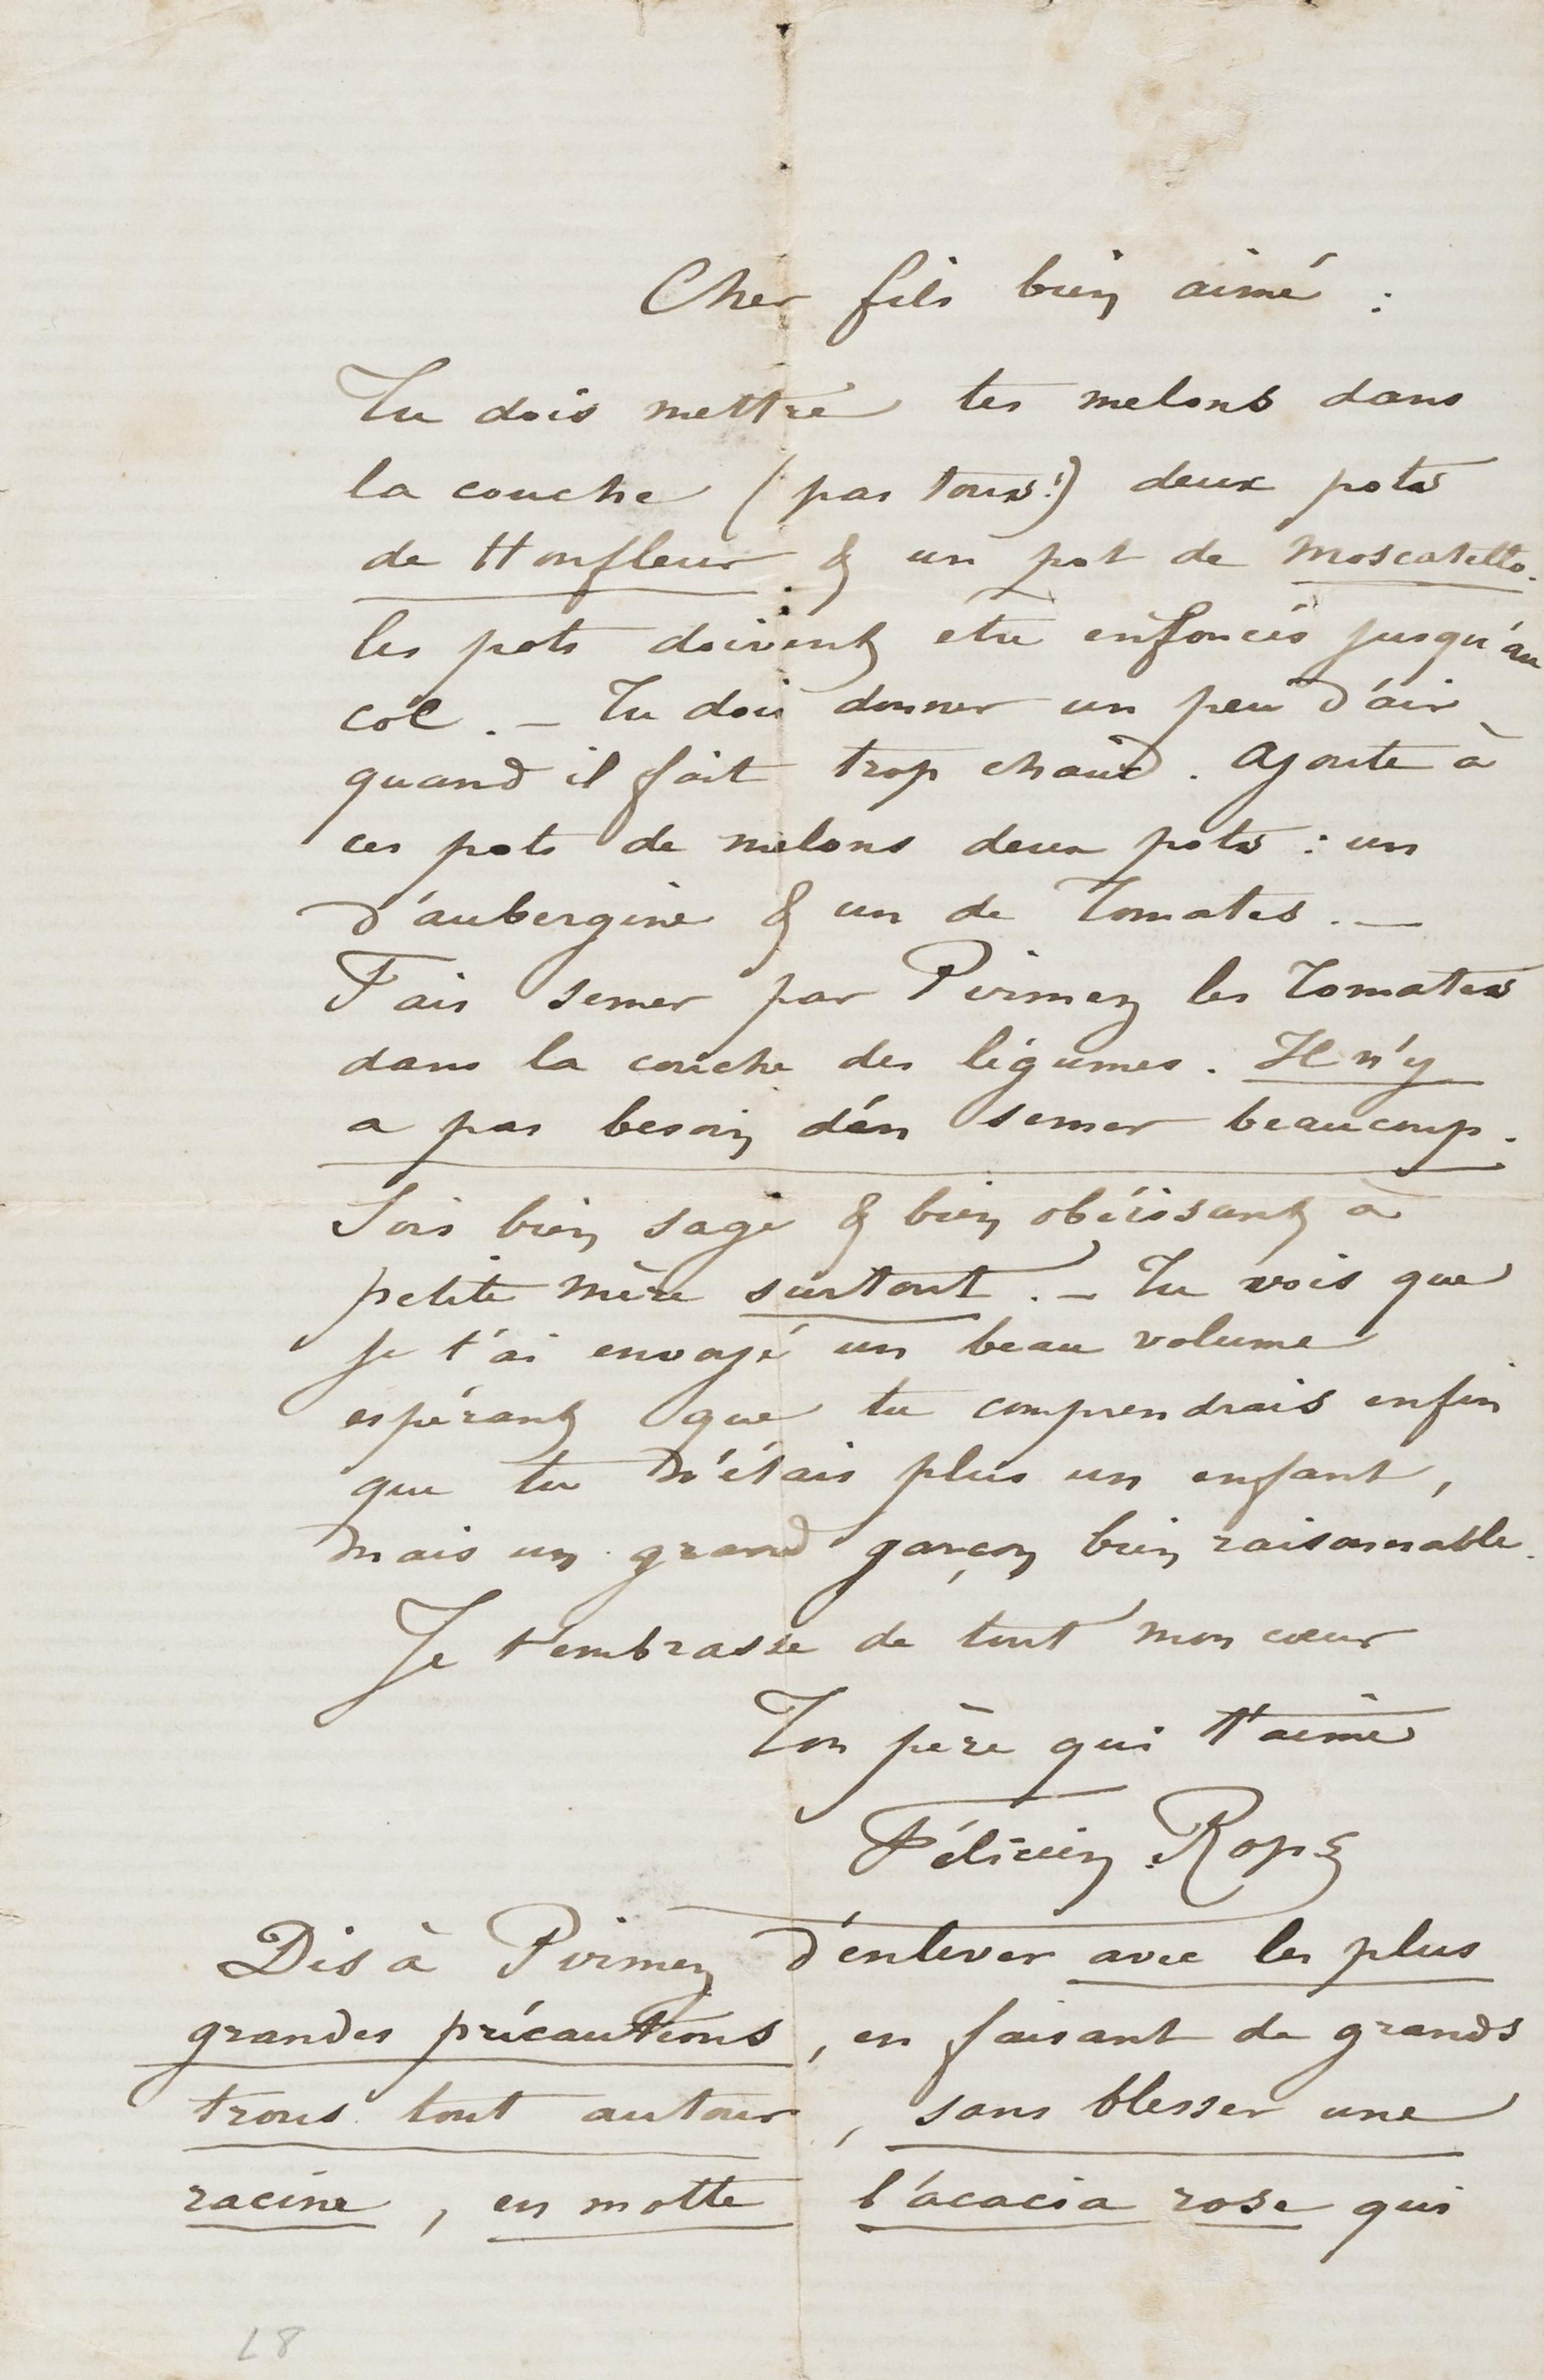 Cher fils bien aimé :
Tu dois mettre tes melons dans
la couche (pas tous !) deux pots
de Honfleur & un pot de Moscatello.
les pots doivent etre enfoncés jusqu'au
col. — Tu dois donner un peu d'air
quand il fait trop chaud. Ajoute à
ces pots de melons deux pots : un
d'aubergine & un de Tomates. —
Fais semer par Pirmez les Tomates
dans la couche des légumes. Il n'y
a pas besoin d'en semer beaucoup.
Sois bien sage & bien obéissant à
petite mère surtout. — Tu vois que
je t'ai envoyé un beau volume
espérant que tu comprendrais enfin
que tu n'étais plus un enfant,
mais un grand garçon bien raisonnable.
Je t'embrasse de tout mon cœur
Ton père qui t'aime
Félicien Rops
Dis à Pirmez d'enlever avec les plus
grandes précautions, en faisant de grands
trous tout autour, sans blesser une
racine, en motte l'acacia rose qui
L8